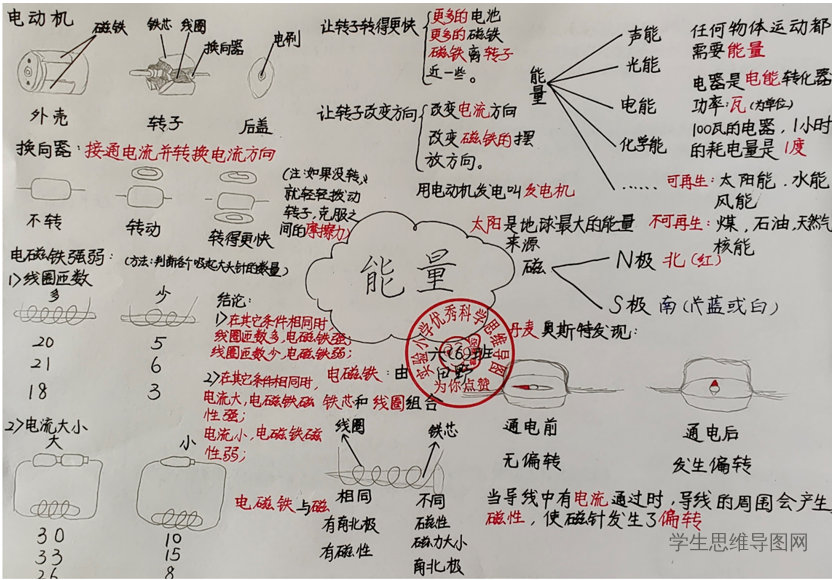 电动机
磁铁
铁芯 线圈
换向器
电刷
外壳
转子
后盖
换向器：接通电流并转换电流方向
不转
转动
转得更快
(注：如果没转，
就轻轻拨动
转子，克服之
间的摩擦力)
让转子转得更快
更多的电池
更多的磁铁
磁铁离转子
近一些。
让转子改变方向
改变电流方向
改变磁铁的摆
放方向。
用电动机发电叫发电机
能量
声能
光能
电能
化学能
……
任何物体运动都
需要能量
电器是电能转化器
功率：瓦(为单位)
100瓦的电器，1小时
的耗电量是1度
可再生：太阳能．水能
风能
不可再生：煤，石油，天然气
核能
太阳是地球最大的能量
来源
能量
磁
N极 北(红)
S极 南(蓝或白)
电磁铁强弱：(方法：判断各个吸起大头针的数量)
1)线圈匝数
多
少
20
5
21
6
18
3
2)电流大小
大
小
30
10
33
15
26
8
结论：
1)在其它条件相同时，
线圈匝数多，电磁铁强；
线圈匝数少，电磁铁弱；
2)在其它条件相同时，
电流大，电磁铁磁
性强；
电流小，电磁铁磁
性弱；
实验小学优秀科学思维导图
为你点赞
六(6)班
电磁铁：由
铁芯和线圈组合
线圈
铁芯
电磁铁与磁
相同
有南北极
有磁性
不同
磁性
磁力大小
南北极
丹麦奥斯特发现：
通电前
无偏转
通电后
发生偏转
当导线中有电流通过时，导线的周围会产生
磁性，使磁针发生了偏转
学生思维导图网